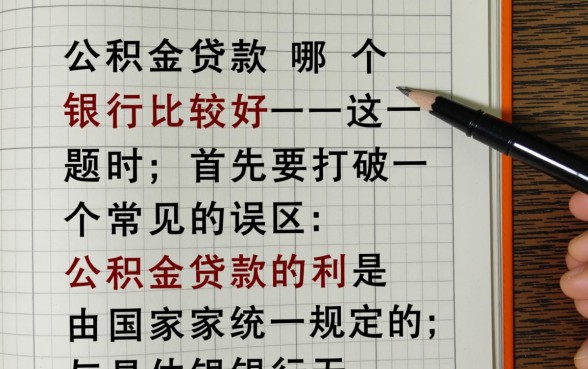 公积金贷款 哪 个
银行比较好一一这一
题时；首先要打破一
个常见的误区：
公积金贷款的利是
由国家家统一规定的；
与具体银银行无